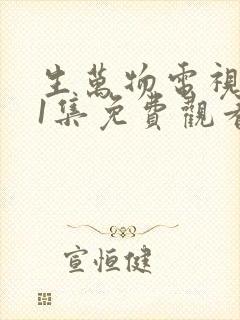 生萬物電視
1集免費觀看
宣恒健